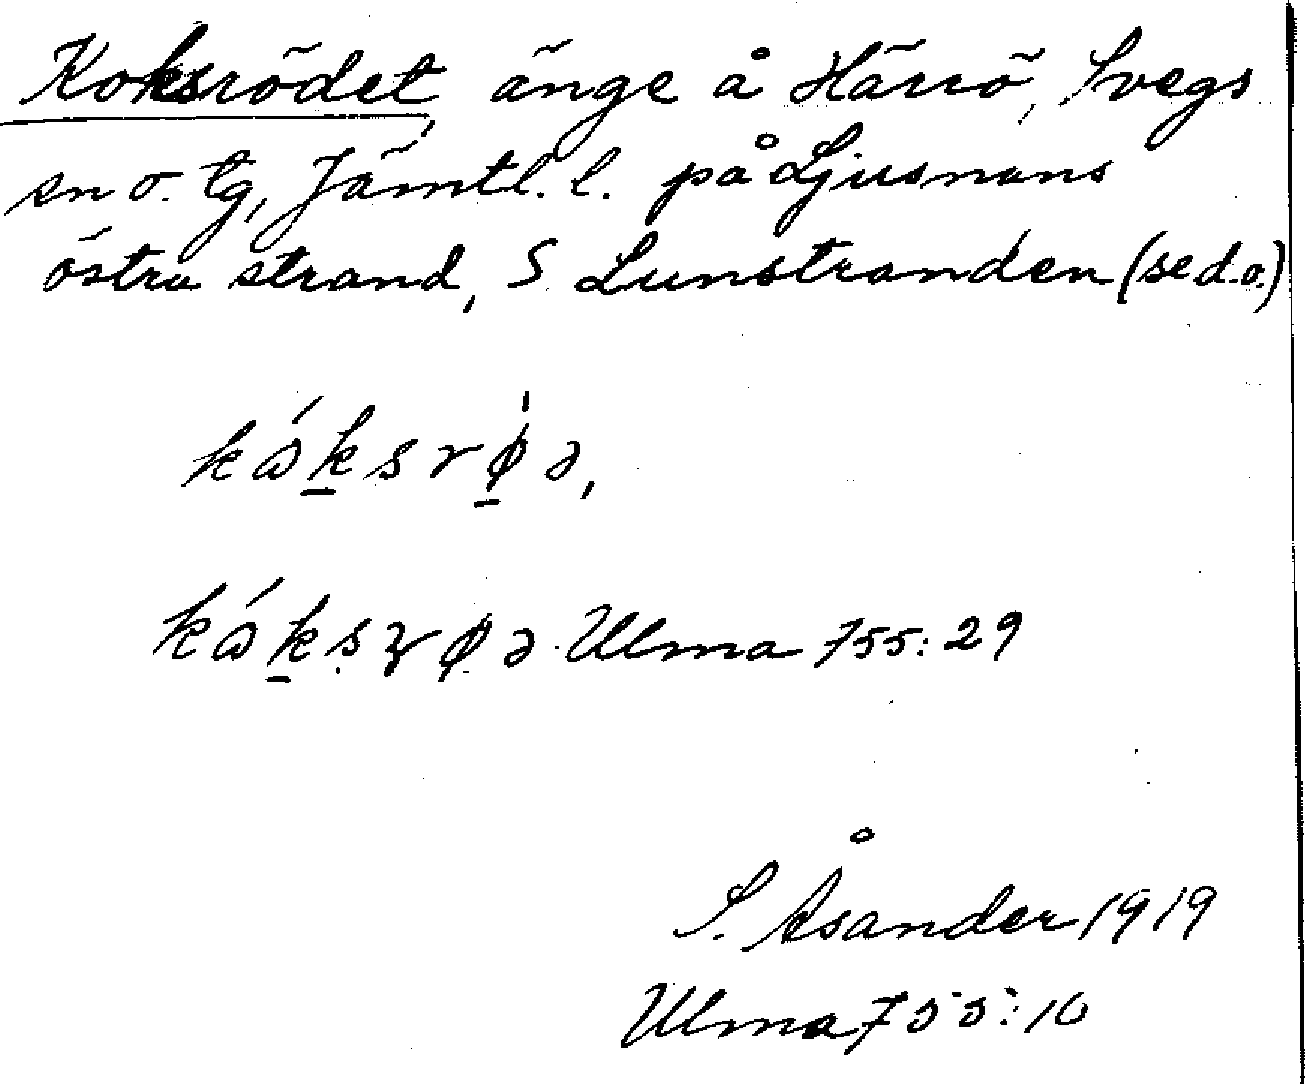 Koksrödet, änge å Härrö, Svegs
sn o. tg, Jämtl. l. på Ljusnans
östra strand, S Lunstranden (se d.o.)
kɷ́k̲srø̲̍ə,
kɷ́k̲ṣrøə. Ulma 755:29
S. Åsander 1919
Ulma 755:10